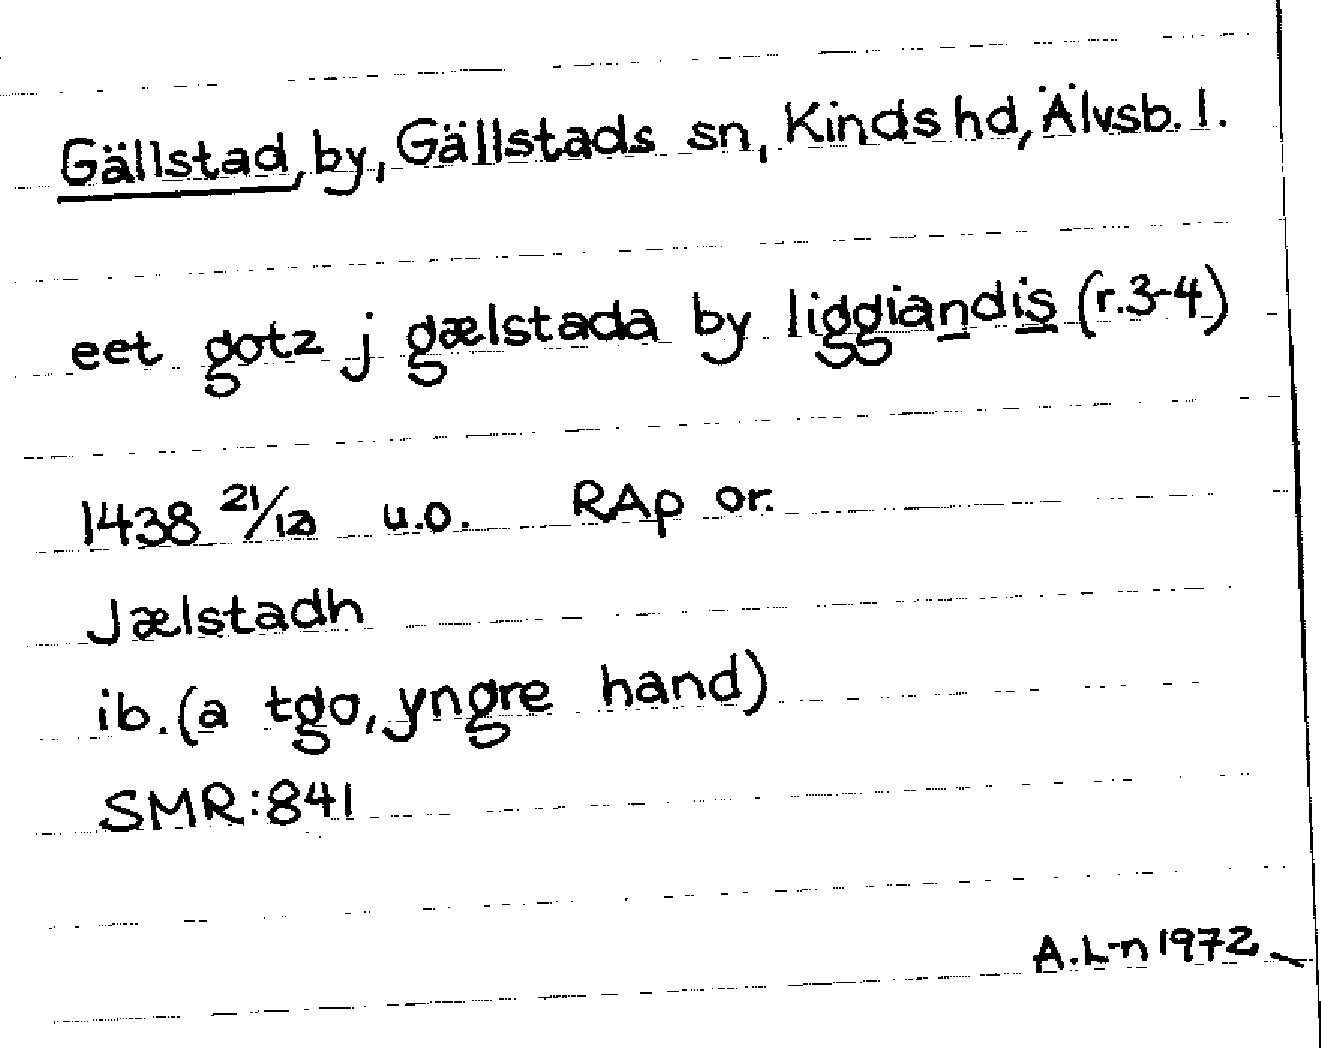 Gällstad, by, Gällstads sn, Kinds hd, Älvsb. l.
eet gotz j gælstada by liggiandis (r.3-4)
1438 21/12 u.o. RAp or.
Jælstadh
ib. (a tgo, yngre hand)
SMR:841
A.L-n 1972